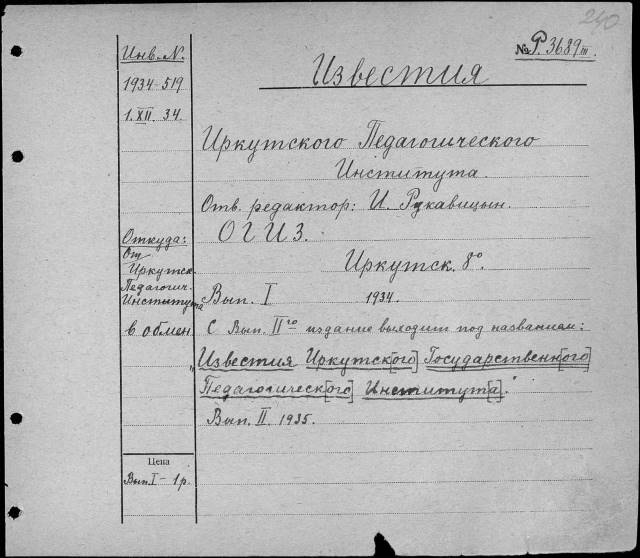 240
№ Р. 3689 III.
Известия
Иркутского Педагогического
Института.
Отв. редактор: И. Рукавицын.
ОГИЗ.
Иркутск. 8°.
Вып. I 1934.
С Вып. II го издание выходит под названием:
"Известия Иркутск[ого] Государственн[ого]
Педагогическ[ого] Института[а]."
Вып. II. 1935.
Инв. N.
1934-519
1. XII. 34.
Откуда:
От
Иркутск.
Педагогич.
Института
в обмен
Цена
Вып. I - 1 р.